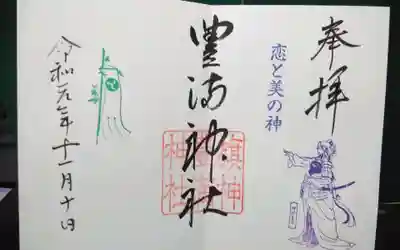 奉拝
恋と美の神
豊満神社
令和元年十一月十日